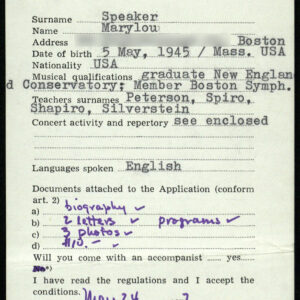 Surname Speaker
Name Marylou
Address Boston
Date of birth 5 May, 1945 / Mass. USA
Nationality USA
Musical qualifications graduate New Englan
d Conservatory; Member Boston Symph.
Teachers surnames Peterson, Spiro,
Shapiro, Silverstein
Concert activity and repertory see enclosed
Languages spoken English
Documents attached to the Application (conform
art. 2)
a) biography ✓
b) 2 letters ✓ programs ✓
c) 3 photos ✓
d)
Will you come with an accompanist yes
I have read the regulations and I accept the
conditions.